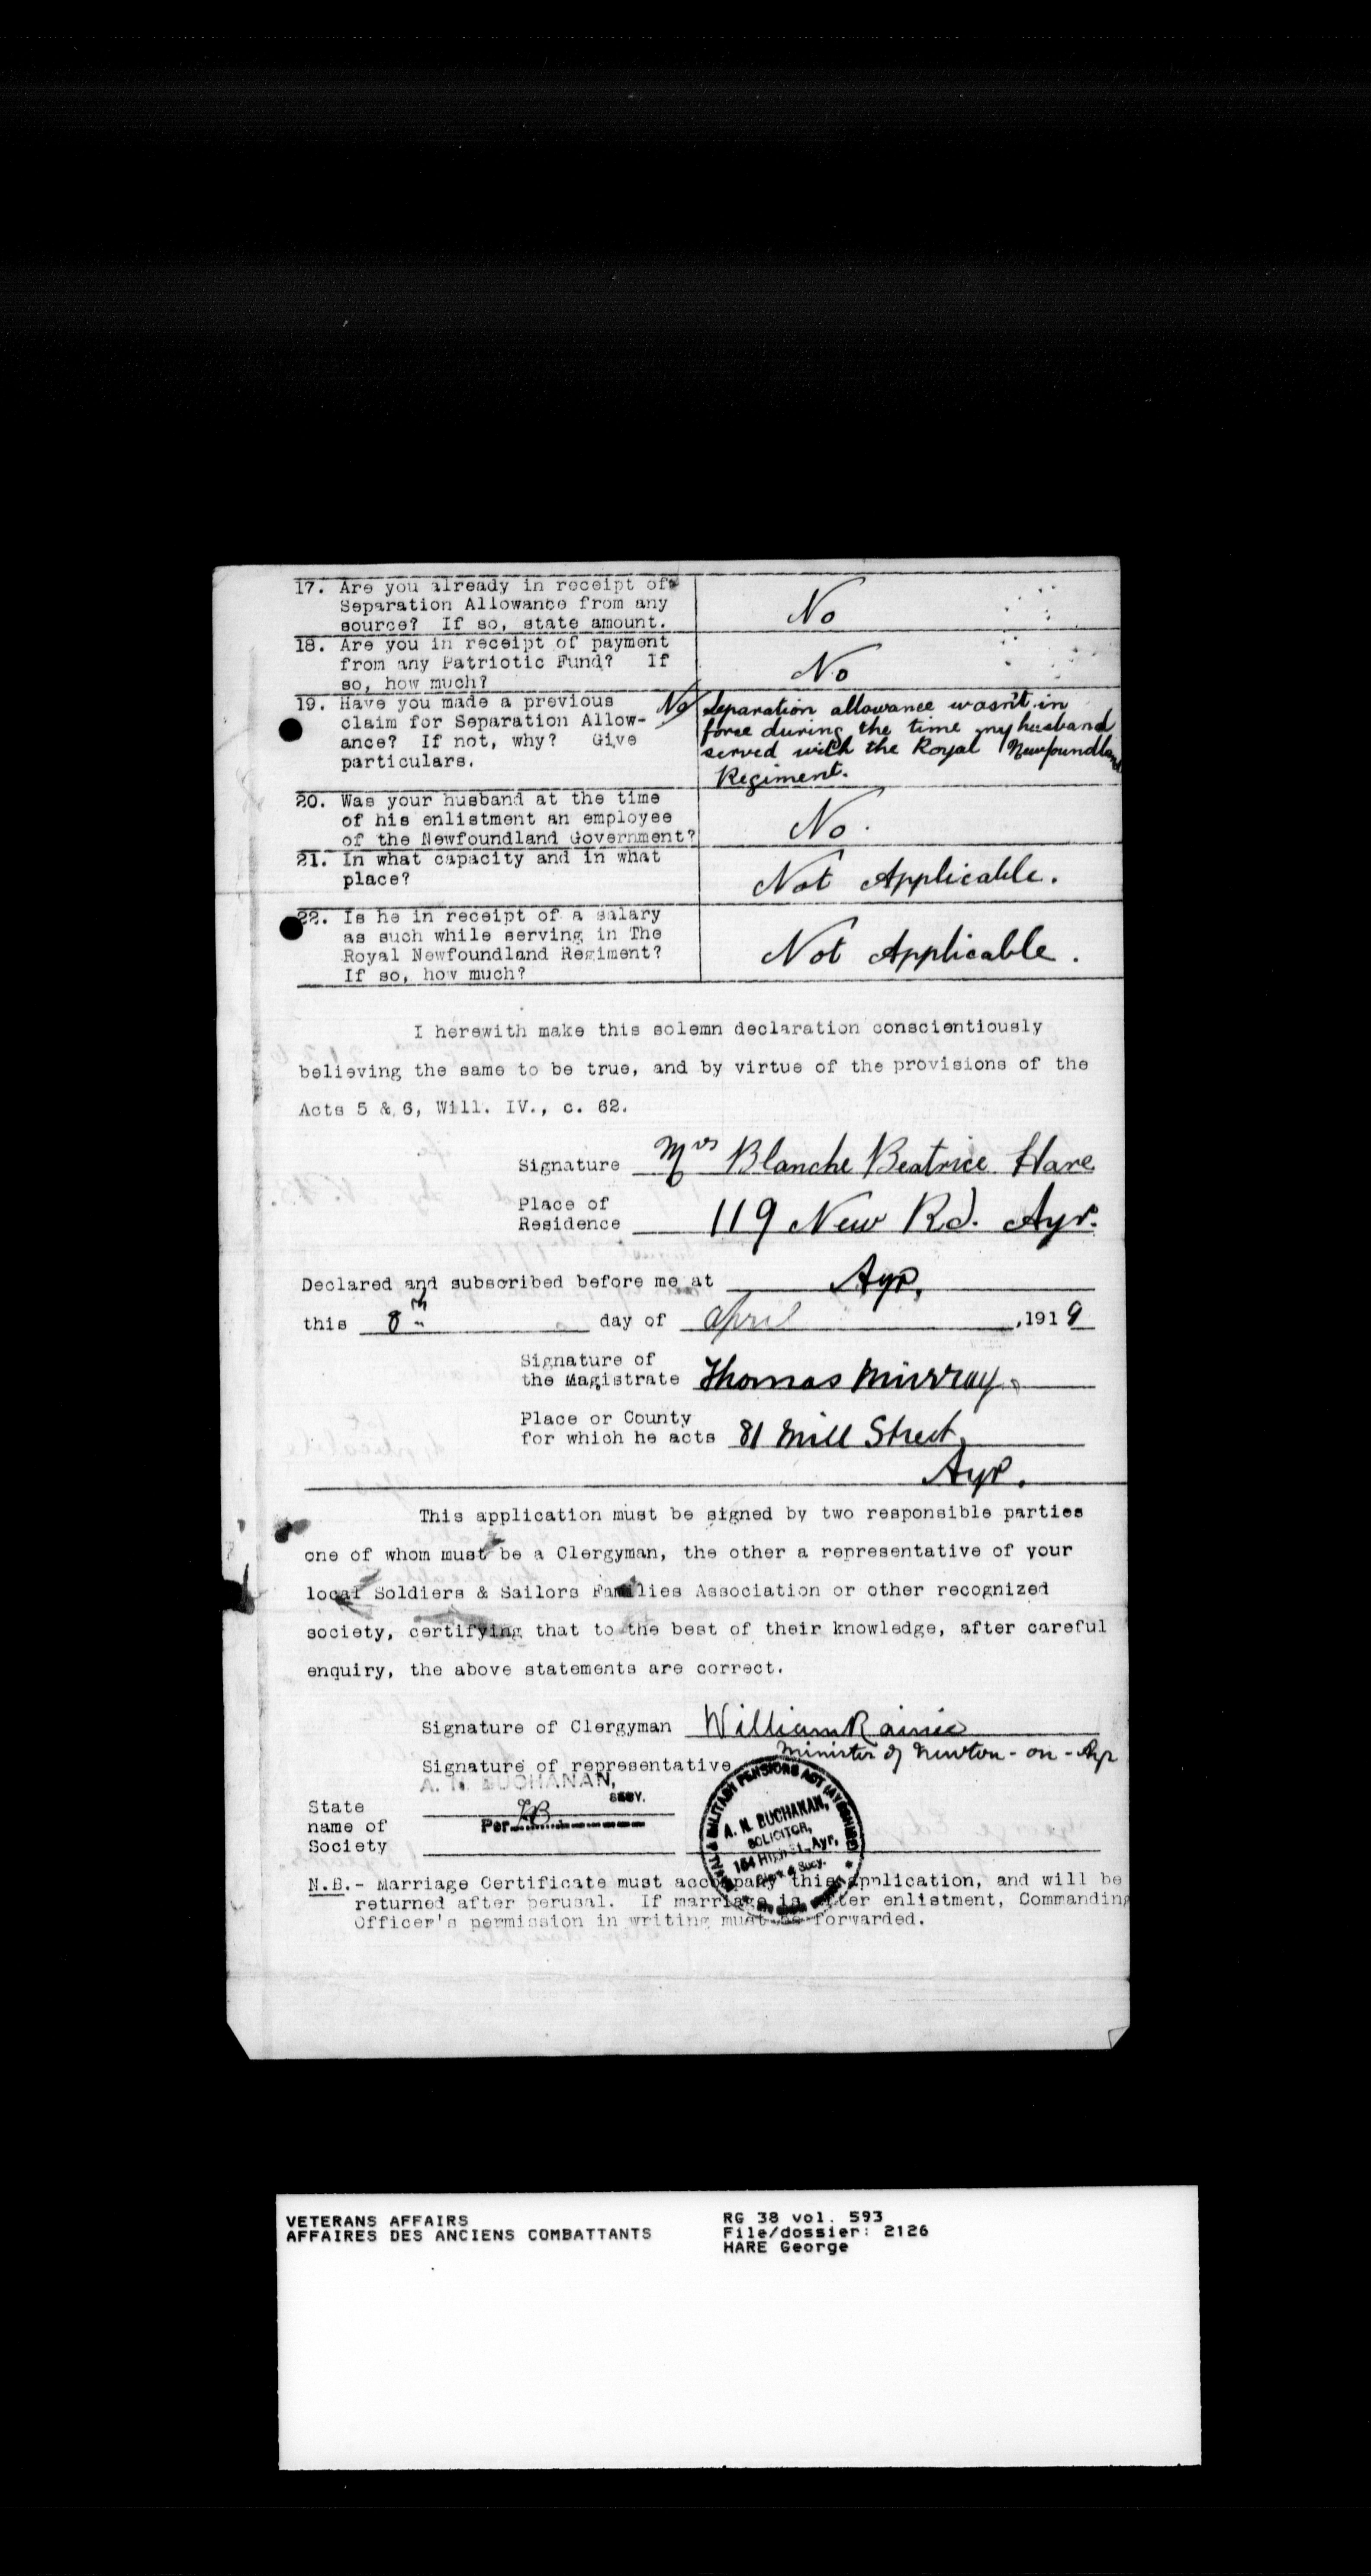 17. Are you already in receipt of
Separation Allowance from any
source? If so, state amount.
No
18. Are you in receipt of payment
from any Patriotic Fund? If
so, how much?
No
19. Have you made a previous
claim for Separation Allow-
ance? If not, why? Give
particulars.
No
Separation allowance wasn't in
force during the time my husband
served with the Royal Newfoundland
Regiment.
20. Was your husband at the time
of his enlistment an employee
of the Newfoundland Government?
No.
21. In what capacity and in what
place?
Not Applicable.
22. Is he in receipt of a salary
as such while serving in The
Royal Newfoundland Regiment?
If so, how much?
Not Applicable.
I herewith make this solemn declaration conscientiously
believing the same to be true, and by virtue of the provisions of the
Acts 5 & 6, Will. IV., c. 62.
Signature Mrs Blanche Beatrice Hare
Place of
Residence 119 New Rd. Ayr.
Declared and subscribed before me at Ayr.
this 8th day of April, 1919
Signature of
the Magistrate Thomas Murray.
Place or County
for which he acts 81 Mill Street,
Ayr.
This application must be signed by two responsible parties
one of whom must be a Clergyman, the other a representative of your
local Soldiers & Sailors Families Association or other recognized
society, certifying that to the best of their knowledge, after careful
enquiry, the above statements are correct.
Signature of Clergyman William Rainie
Minister of Newton-on-Ayr
Signature of representative
A. N. BUCHANAN,
SECY.
Per
State
name of
Society
NAVAL & MILITARY PENSIONS ACT (AYRSHIRE)
A. N. BUCHANAN,
SOLICITOR,
164 High St., Ayr,
Clerk & Secy.
N.B.- Marriage Certificate must accompany this application, and will be
returned after perusal. If marriage is after enlistment, Commanding
Officer's permission in writing must be forwarded.
VETERANS AFFAIRS
AFFAIRES DES ANCIENS COMBATTANTS
RG 38 vol. 593
File/dossier: 2126
HARE George